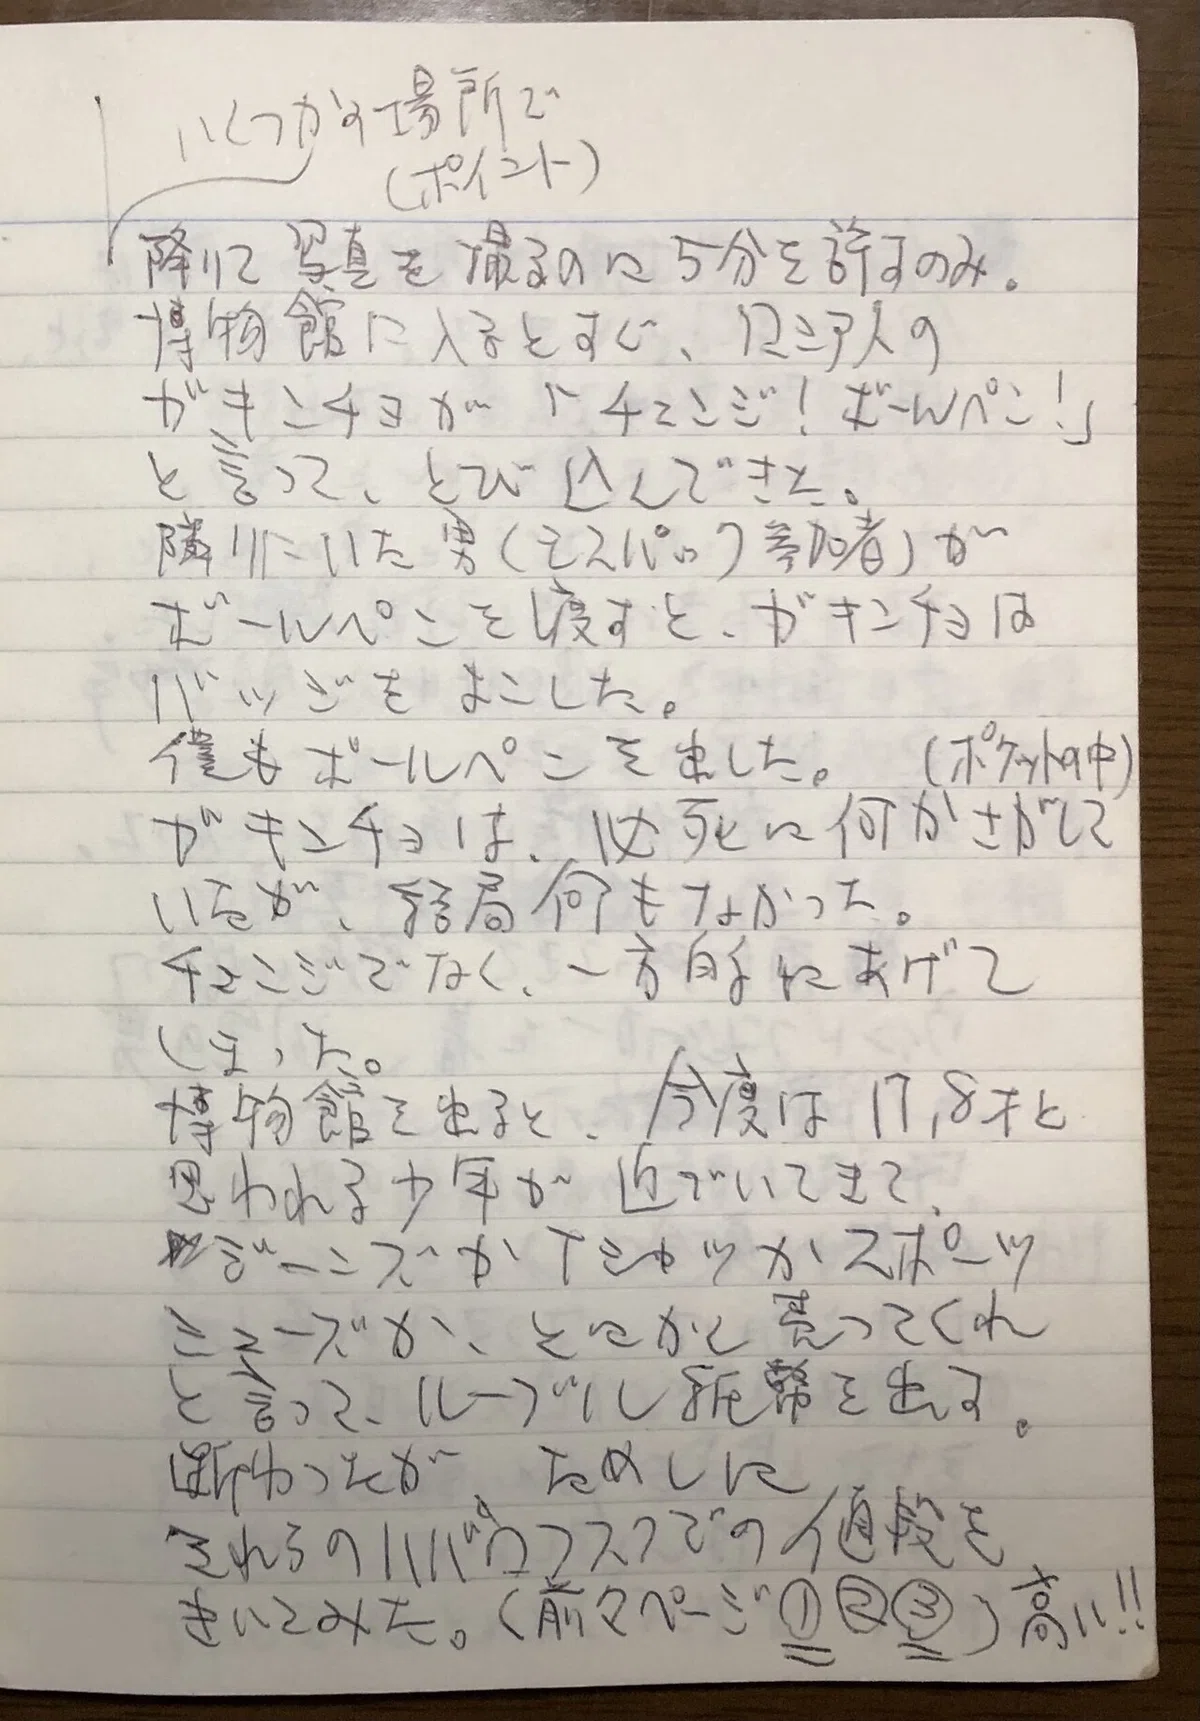 いくつかの場所で
(ポイント)
降りて写真を撮るのに5分を許すのみ。
博物館に入るとすぐ、ロシア人の
ガキンチョが「チェンジ!ボールペン!」
と言って、とび込んできた。
隣りにいた男(モスパック参加者)が
ボールペンを渡すと、ガキンチョは
バッジをよこした。
僕もボールペンを出した。(ポケットの中)
ガキンチョは、必死に何かさがして
いるが、結局何もなかった。
チェンジでなく、一方的にあげて
しまった。
博物館を出ると、今度は17,8才と
思われる少年が近づいてきて、
ジーンズかTシャツかスポーツ
シューズか、とにかく売ってくれ
と言って、ルーブル紙幣を出す。
断わったが、ためしに
それらのハバロフスクでの値段を
きいてみた。(前々ページ①②③)高い!!